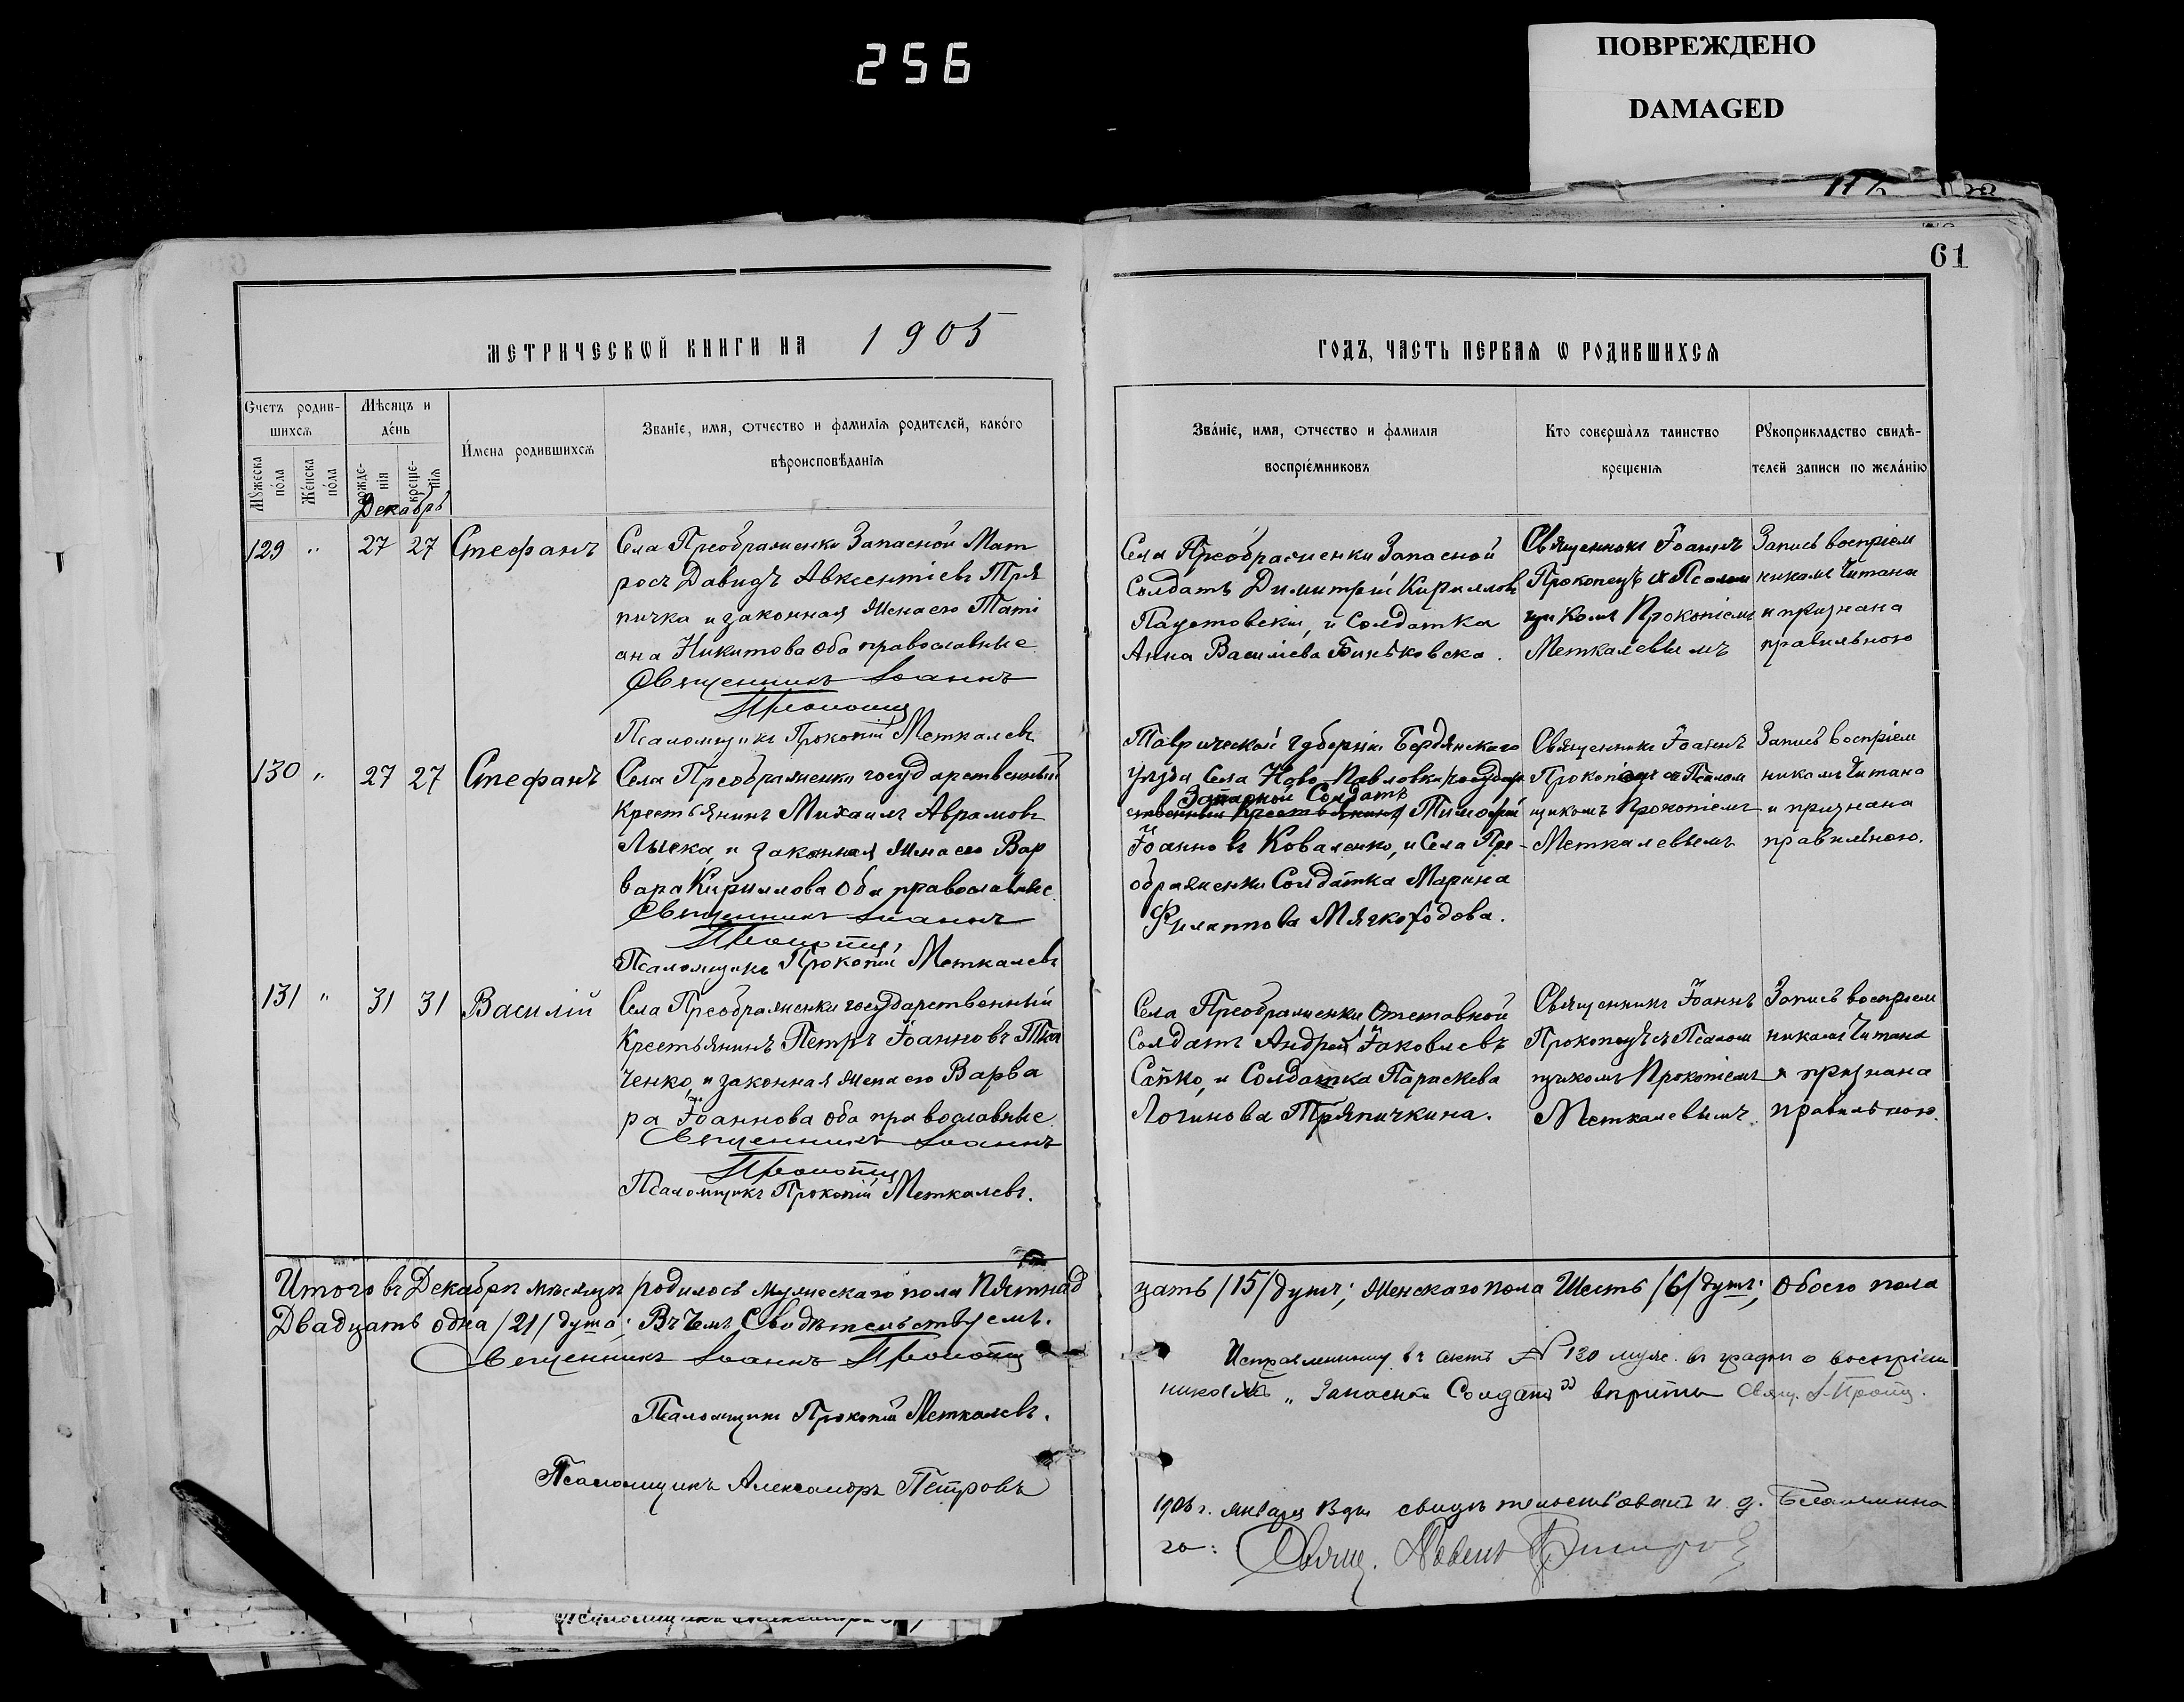 256
ПОВРЕЖДЕНО
DAMAGED
61
МЕТРИЧЕСКОЙ КНИГИ НА 1905
ГОДЪ, ЧАСТЬ ПЕРВАЯ Ѡ РОДИВШИХСЯ
Счетъ родив-
шихся
Мѣсяцъ и
день
Имена родившихся
Званіе, имя, отчество и фамилія родителей, какого
вѣроисповѣданія
Мужеска
пола
Женска
пола
рожде-
нія
креще-
нія
Декабрь
Званіе, имя, отчество и фамилія
воспріемниковъ
Кто совершалъ таинство
крещенія
Рукоприкладство свидѣ-
телей записи по желанію
129 " 27 27 Стефанъ
Села Преображенки Запасной Мат
росъ Давидъ Авксентіевъ Тря
пичка и законная жена его Таті
ана Никитова оба православные
Священникъ Іоаннъ
Прокопецъ
Псаломщикъ Прокопій Меткалевъ
Села Преображенки Запасной
Солдатъ Димитрій Кирилловъ
Паустовскій, и Солдатка
Анна Василіева Биньковска.
Священникъ Іоаннъ
Прокопецъ съ Псалом
щикомъ Прокопіемъ
Меткалевымъ
Запись воспріем
никамъ читана
и признана
правильною
130 " 27 27 Стефанъ
Села Преображенки государственный
крестьянинъ Михаилъ Аврамовъ
Лыска, и законная жена его Вар
вара Кириллова оба православные
Священникъ Іоаннъ
Прокопецъ
Псаломщикъ Прокопій Меткалевъ
Таврической губерніи Бердянскаго
уѣзда Села Ново-Павловки государ
Запасной Солдатъ
ственный крестьянинъ Тимофей
Іоанновъ Коваленко, и Села Пре-
ображенки Солдатка Марина
Филиппова Мягкоходова.
Священникъ Іоаннъ
Прокопецъ съ Псалом
щикомъ Прокопіемъ
Меткалевымъ
Запись воспріем
никамъ читана
и признана
правильною.
131 " 31 31 Василій
Села Преображенки государственный
крестьянинъ Петръ Іоанновъ Тка
ченко, и законная жена его Варва
ра Іоаннова оба православные
Священникъ Іоаннъ
Прокопецъ
Псаломщикъ Прокопій Меткалевъ.
Села Преображенки Отставной
Солдатъ Андрей Іаковлевъ
Сапко, и Солдатка Параскева
Логинова Тряпичкина.
Священникъ Іоаннъ
Прокопецъ съ Псалом
щикомъ Прокопіемъ
Меткалевымъ.
Запись воспріем
никамъ читана
и признана
правильною.
Итого въ Декабрѣ мѣсяцѣ родилось мужескаго пола Пятнад
цать /15/ душъ; женскаго пола Шесть /6/ душъ; обоего пола
Двадцать одна /21/ душа; Въ чемъ Свидѣтельствуемъ.
Священникъ Іоаннъ Прокопецъ
Псаломщикъ Прокопій Меткалевъ.
Псаломщикъ Александръ Петровъ
Исправленному въ актѣ № 130 муж. въ графѣ о воспріем
никахъ „Запасной Солдатъ" вѣрить Свящ. І. Прокоп.
1906 г. января дня свидѣтельствовалъ и. д. Благочинна
го: Свящ. Павелъ